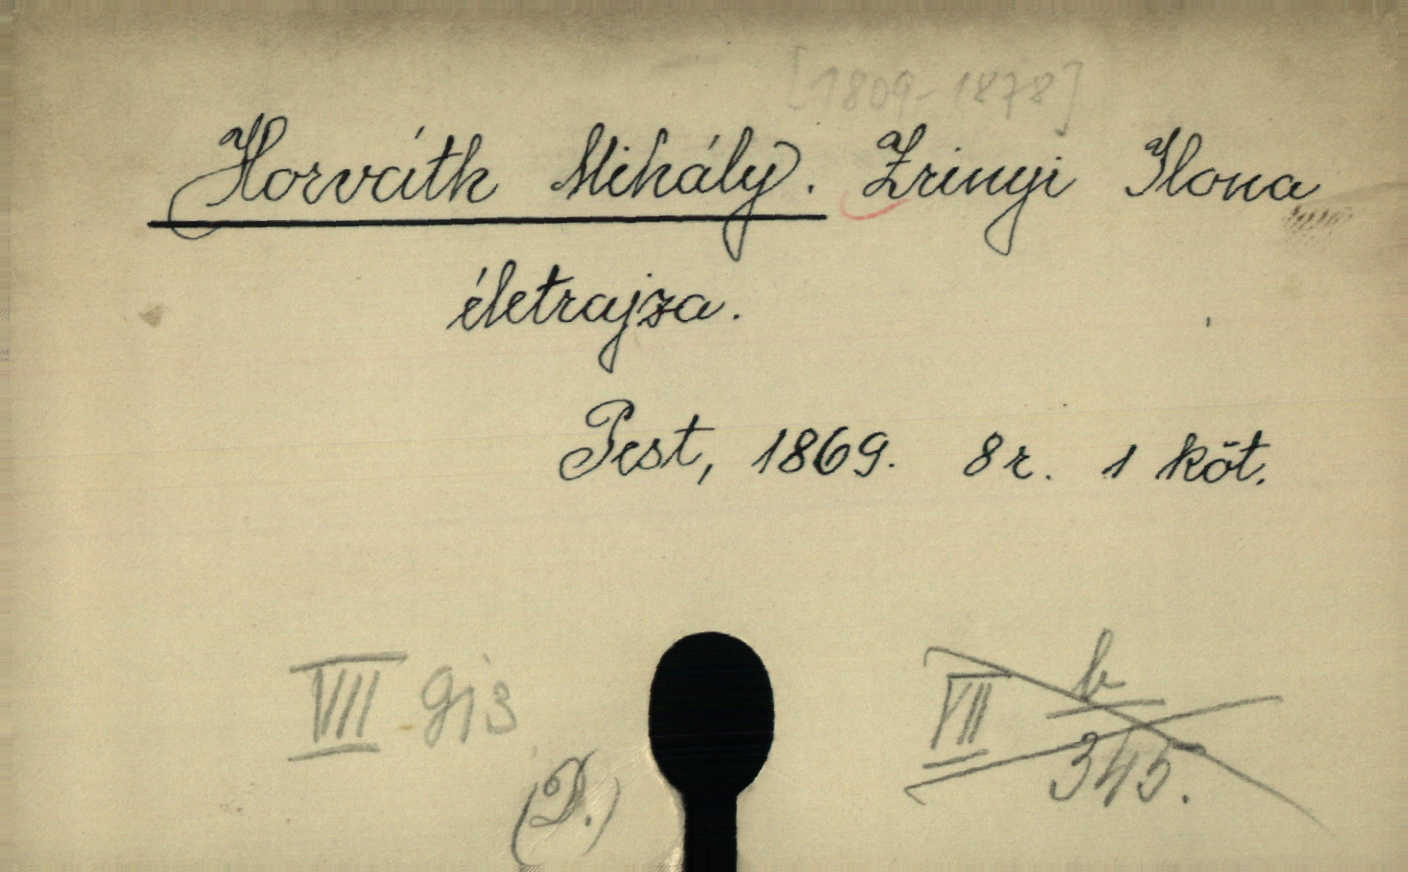 [1809-1878]
Horváth Mihály. Zrinyi Ilona
életrajza.
Pest, 1869. 8r. 1 köt.
VII 913
(D.)
VII b
345.